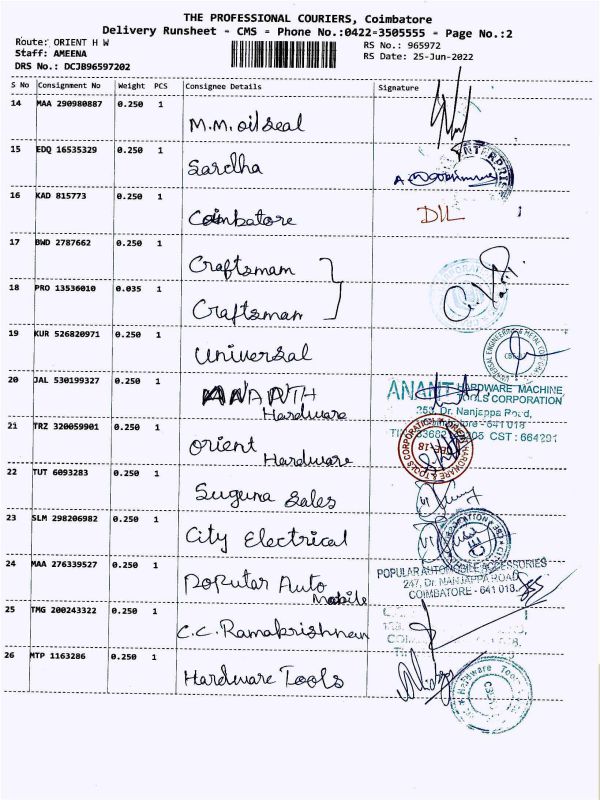 THE PROFESSIONAL COURIERS, Coimbatore
Delivery Runsheet - CMS - Phone No.:0422-3505555 - Page No.:2
Route: ORIENT H W
RS No.: 965972
Staff: AMEENA
RS Date: 25-Jun-2022
DRS No.: DCJB96597202
S No Consignment No Weight PCS Consignee Details Signature
14 MAA 290980887 0.250 1
M.M. oil seal
15 EDQ 16535329 0.250 1
Sardha
ENTERPRISE
16 KAD 815773 0.250 1
Coimbatore DIL
17 BWD 2787662 0.250 1
Craftsman
18 PRO 13536010 0.035 1
Craftsman
19 KUR 526820971 0.250 1
Universal
20 JAL 530199327 0.250 1
ANANTH
Hardware
ANANT HARDWARE MACHINE
TOOLS CORPORATION
253, Dr. Nanjappa Road,
641 018
CST : 664291
21 TRZ 320059901 0.250 1
Orient
Hardware
22 TUT 6093283 0.250 1
Suguna Sales
23 SLM 298206982 0.250 1
City Electrical
24 MAA 276339527 0.250 1
Popular Auto
Mobile
POPULAR AUTOMOBILE ACCESSORIES
247, Dr. NANJAPPA ROAD,
COIMBATORE - 641 018.
25 TMG 200243322 0.250 1
C.C. Ramakrishnan
26 MTP 1163286 0.250 1
Hardware Tools
Hardware Tools